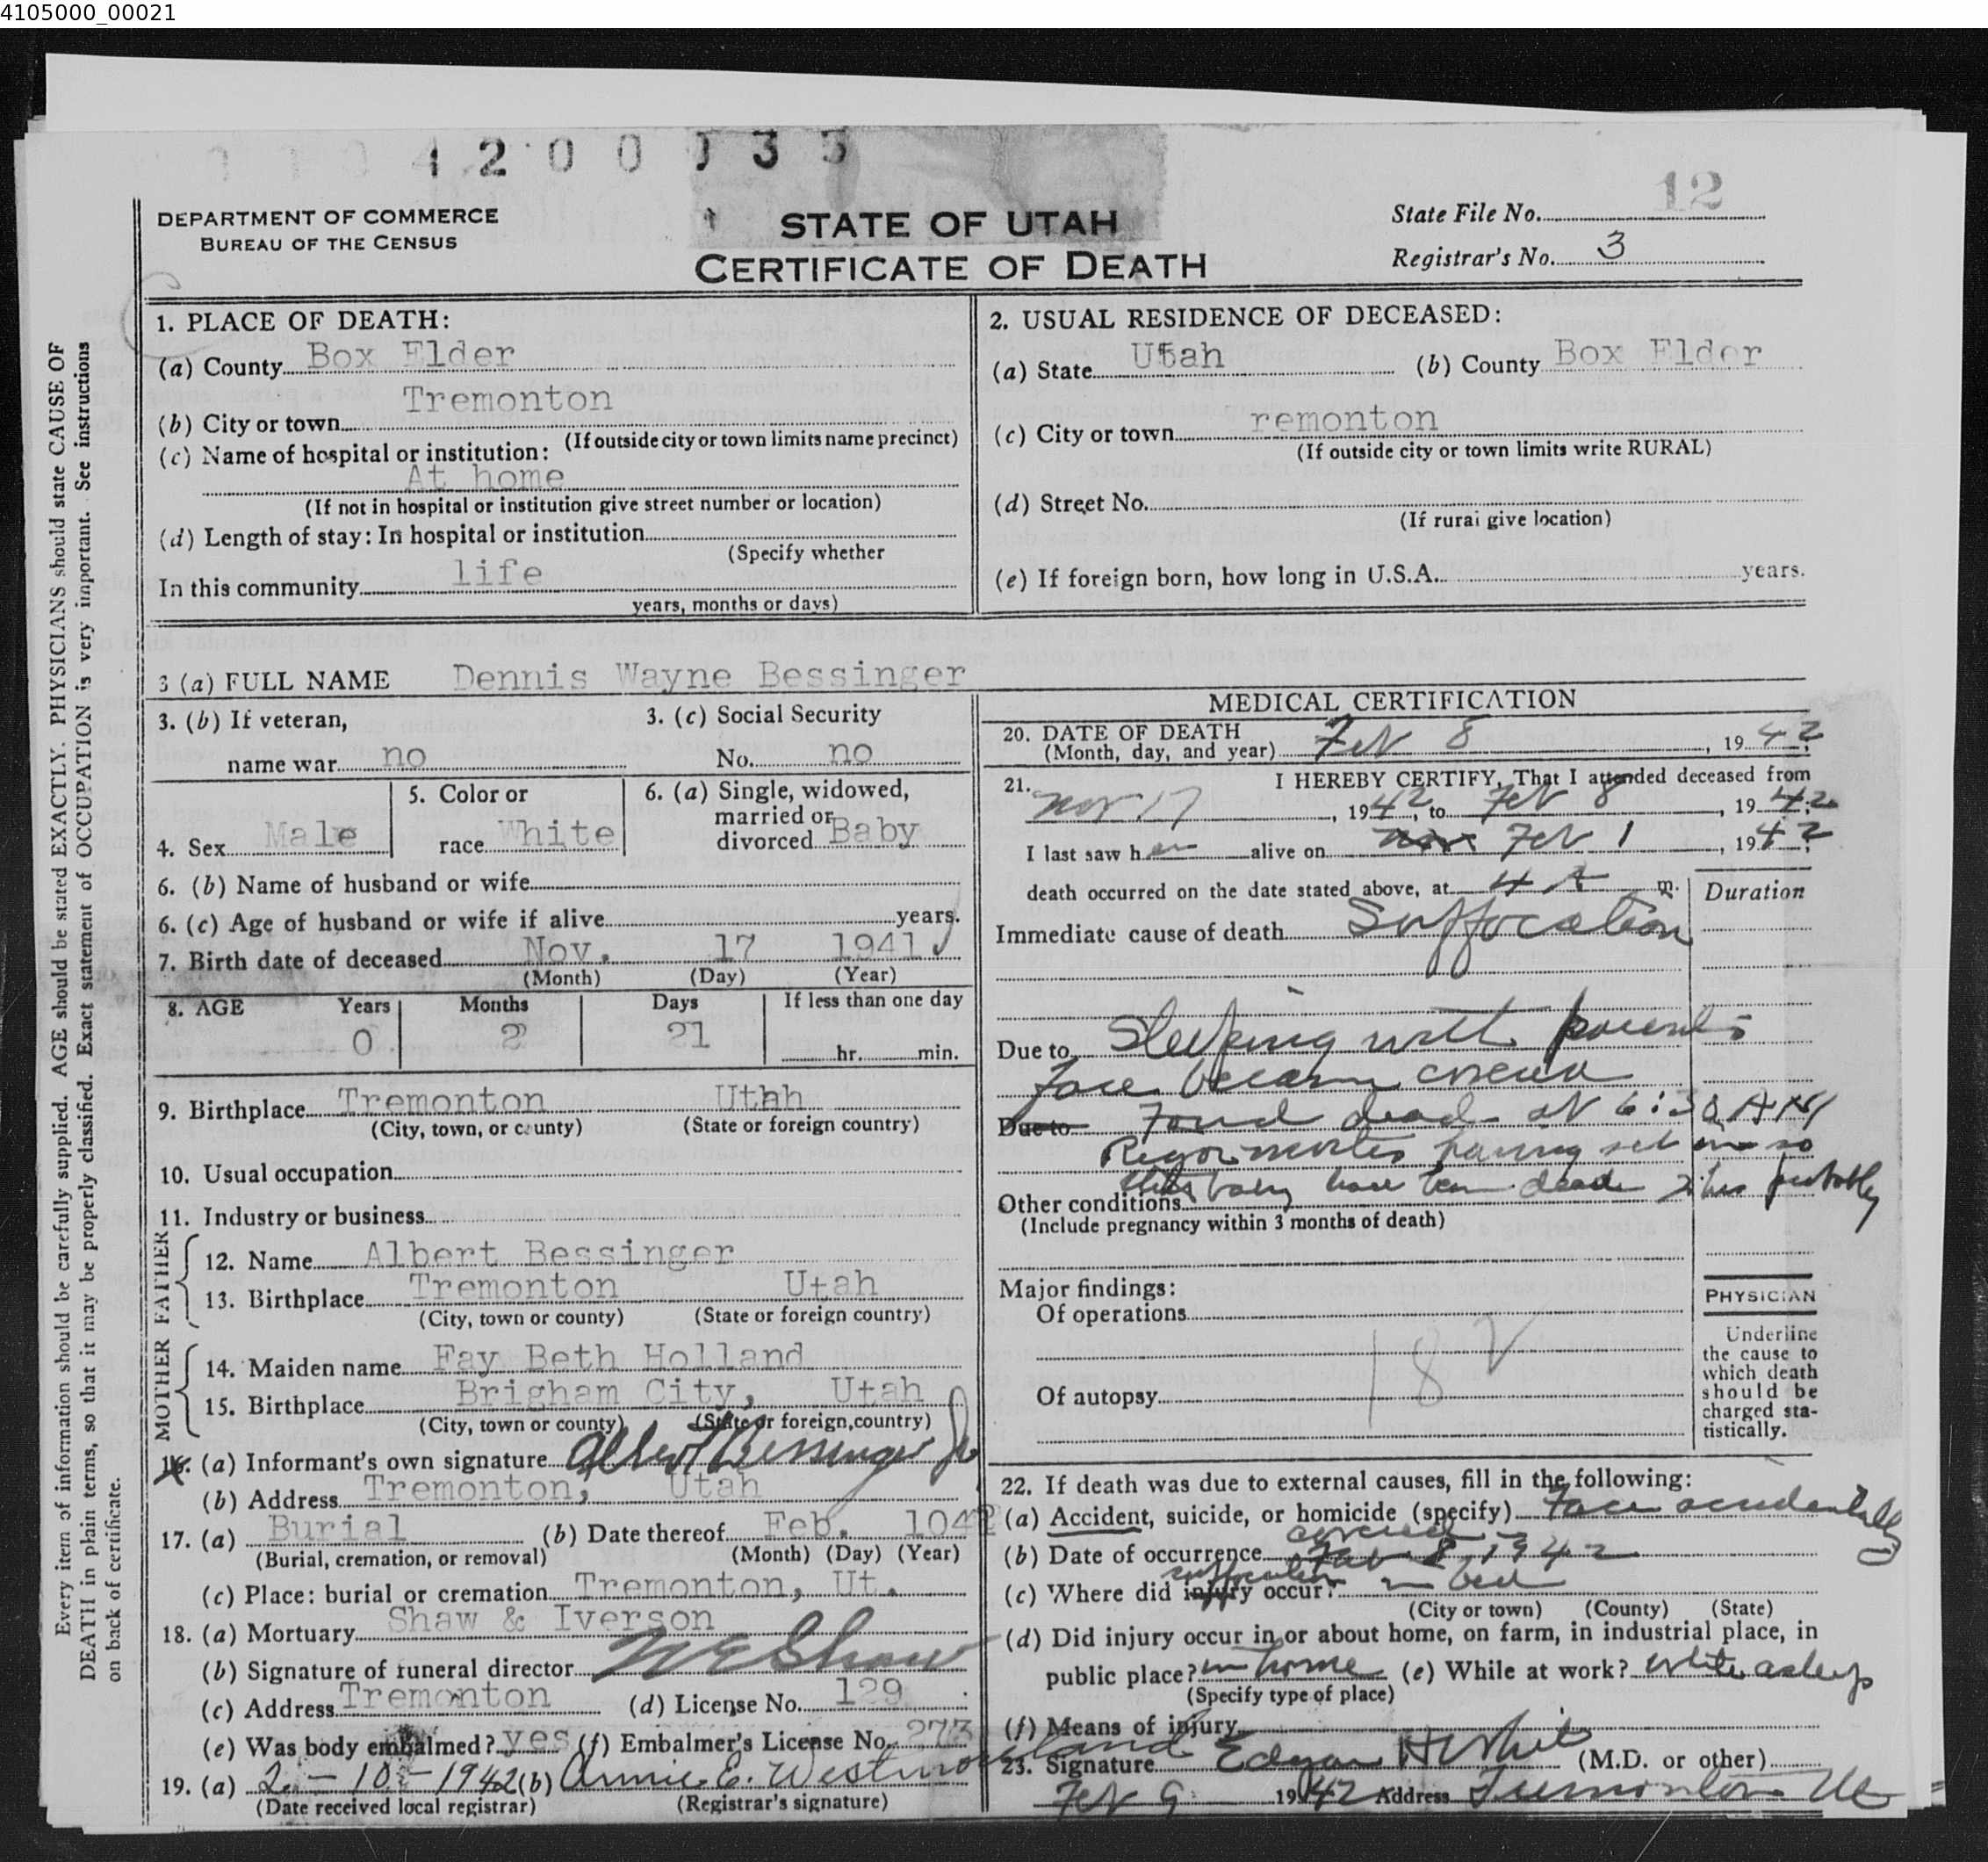 4105000_00021
4 2 0 0 0 3 3
12
DEPARTMENT OF COMMERCE
BUREAU OF THE CENSUS
STATE OF UTAH
CERTIFICATE OF DEATH
State File No.
Registrar's No. 3
Every item of information should be carefully supplied. AGE should be stated EXACTLY. PHYSICIANS should state CAUSE OF
DEATH in plain terms, so that it may be properly classified. Exact statement of OCCUPATION is very important. See instructions
on back of certificate.
1. PLACE OF DEATH:
(a) County Box Elder
(b) City or town Tremonton
(If outside city or town limits name precinct)
(c) Name of hospital or institution:
At home
(If not in hospital or institution give street number or location)
(d) Length of stay: In hospital or institution
(Specify whether
In this community life
years, months or days)
2. USUAL RESIDENCE OF DECEASED:
(a) State Utah (b) County Box Elder
(c) City or town remonton
(If outside city or town limits write RURAL)
(d) Street No.
(If rural give location)
(e) If foreign born, how long in U.S.A. years.
3 (a) FULL NAME Dennis Wayne Bessinger
3. (b) If veteran, 3. (c) Social Security
name war no No. no
4. Sex Male
5. Color or
race White
6. (a) Single, widowed,
married or
divorced Baby
6. (b) Name of husband or wife
6. (c) Age of husband or wife if alive years.
7. Birth date of deceased Nov. 17 1941
(Month) (Day) (Year)
8. AGE Years Months Days If less than one day
0 2 21 hr. min.
9. Birthplace Tremonton Uthh
(City, town, or county) (State or foreign country)
10. Usual occupation
11. Industry or business
FATHER
12. Name Albert Bessinger
13. Birthplace Tremonton Utah
(City, town or county) (State or foreign country)
MOTHER
14. Maiden name Fay Beth Holland
15. Birthplace Brigham City, Utah
(City, town or county) (State or foreign country)
16. (a) Informant's own signature Albert Bessinger Jr
(b) Address Tremonton, Utah
17. (a) Burial (b) Date thereof Feb. 1042
(Burial, cremation, or removal) (Month) (Day) (Year)
(c) Place: burial or cremation Tremonton, Ut.
18. (a) Mortuary Shaw & Iverson
(b) Signature of funeral director W E Shaw
(c) Address Tremonton (d) License No. 129
(e) Was body embalmed? yes (f) Embalmer's License No. 273
19. (a) 2-10-1942 (b) Annie E. Westmoreland
(Date received local registrar) (Registrar's signature)
MEDICAL CERTIFICATION
20. DATE OF DEATH
(Month, day, and year) Feb 8, 1942
21. I HEREBY CERTIFY, That I attended deceased from
Nov 17, 1942, to Feb 8, 1942
I last saw h alive on Feb 1, 1942;
death occurred on the date stated above, at 4 A m.
Duration
Immediate cause of death Suffocation
Due to Sleeping with parents
face became covered
Due to Found dead at 6:30 AM
Rigor mortis having set in so
this baby have been dead 2 hrs probably
Other conditions
(Include pregnancy within 3 months of death)
Major findings:
Of operations
Of autopsy
18
PHYSICIAN
Underline
the cause to
which death
should be
charged sta-
tistically.
22. If death was due to external causes, fill in the following:
(a) Accident, suicide, or homicide (specify) Face accidentally
covered
(b) Date of occurrence Feb 8, 1942
suffocation
(c) Where did injury occur? in bed
(City or town) (County) (State)
(d) Did injury occur in or about home, on farm, in industrial place, in
public place? in home (e) While at work? while asleep
(Specify type of place)
(f) Means of injury
23. Signature Edgar H White (M.D. or other)
Feb 9 1942 Address Tremonton Ut